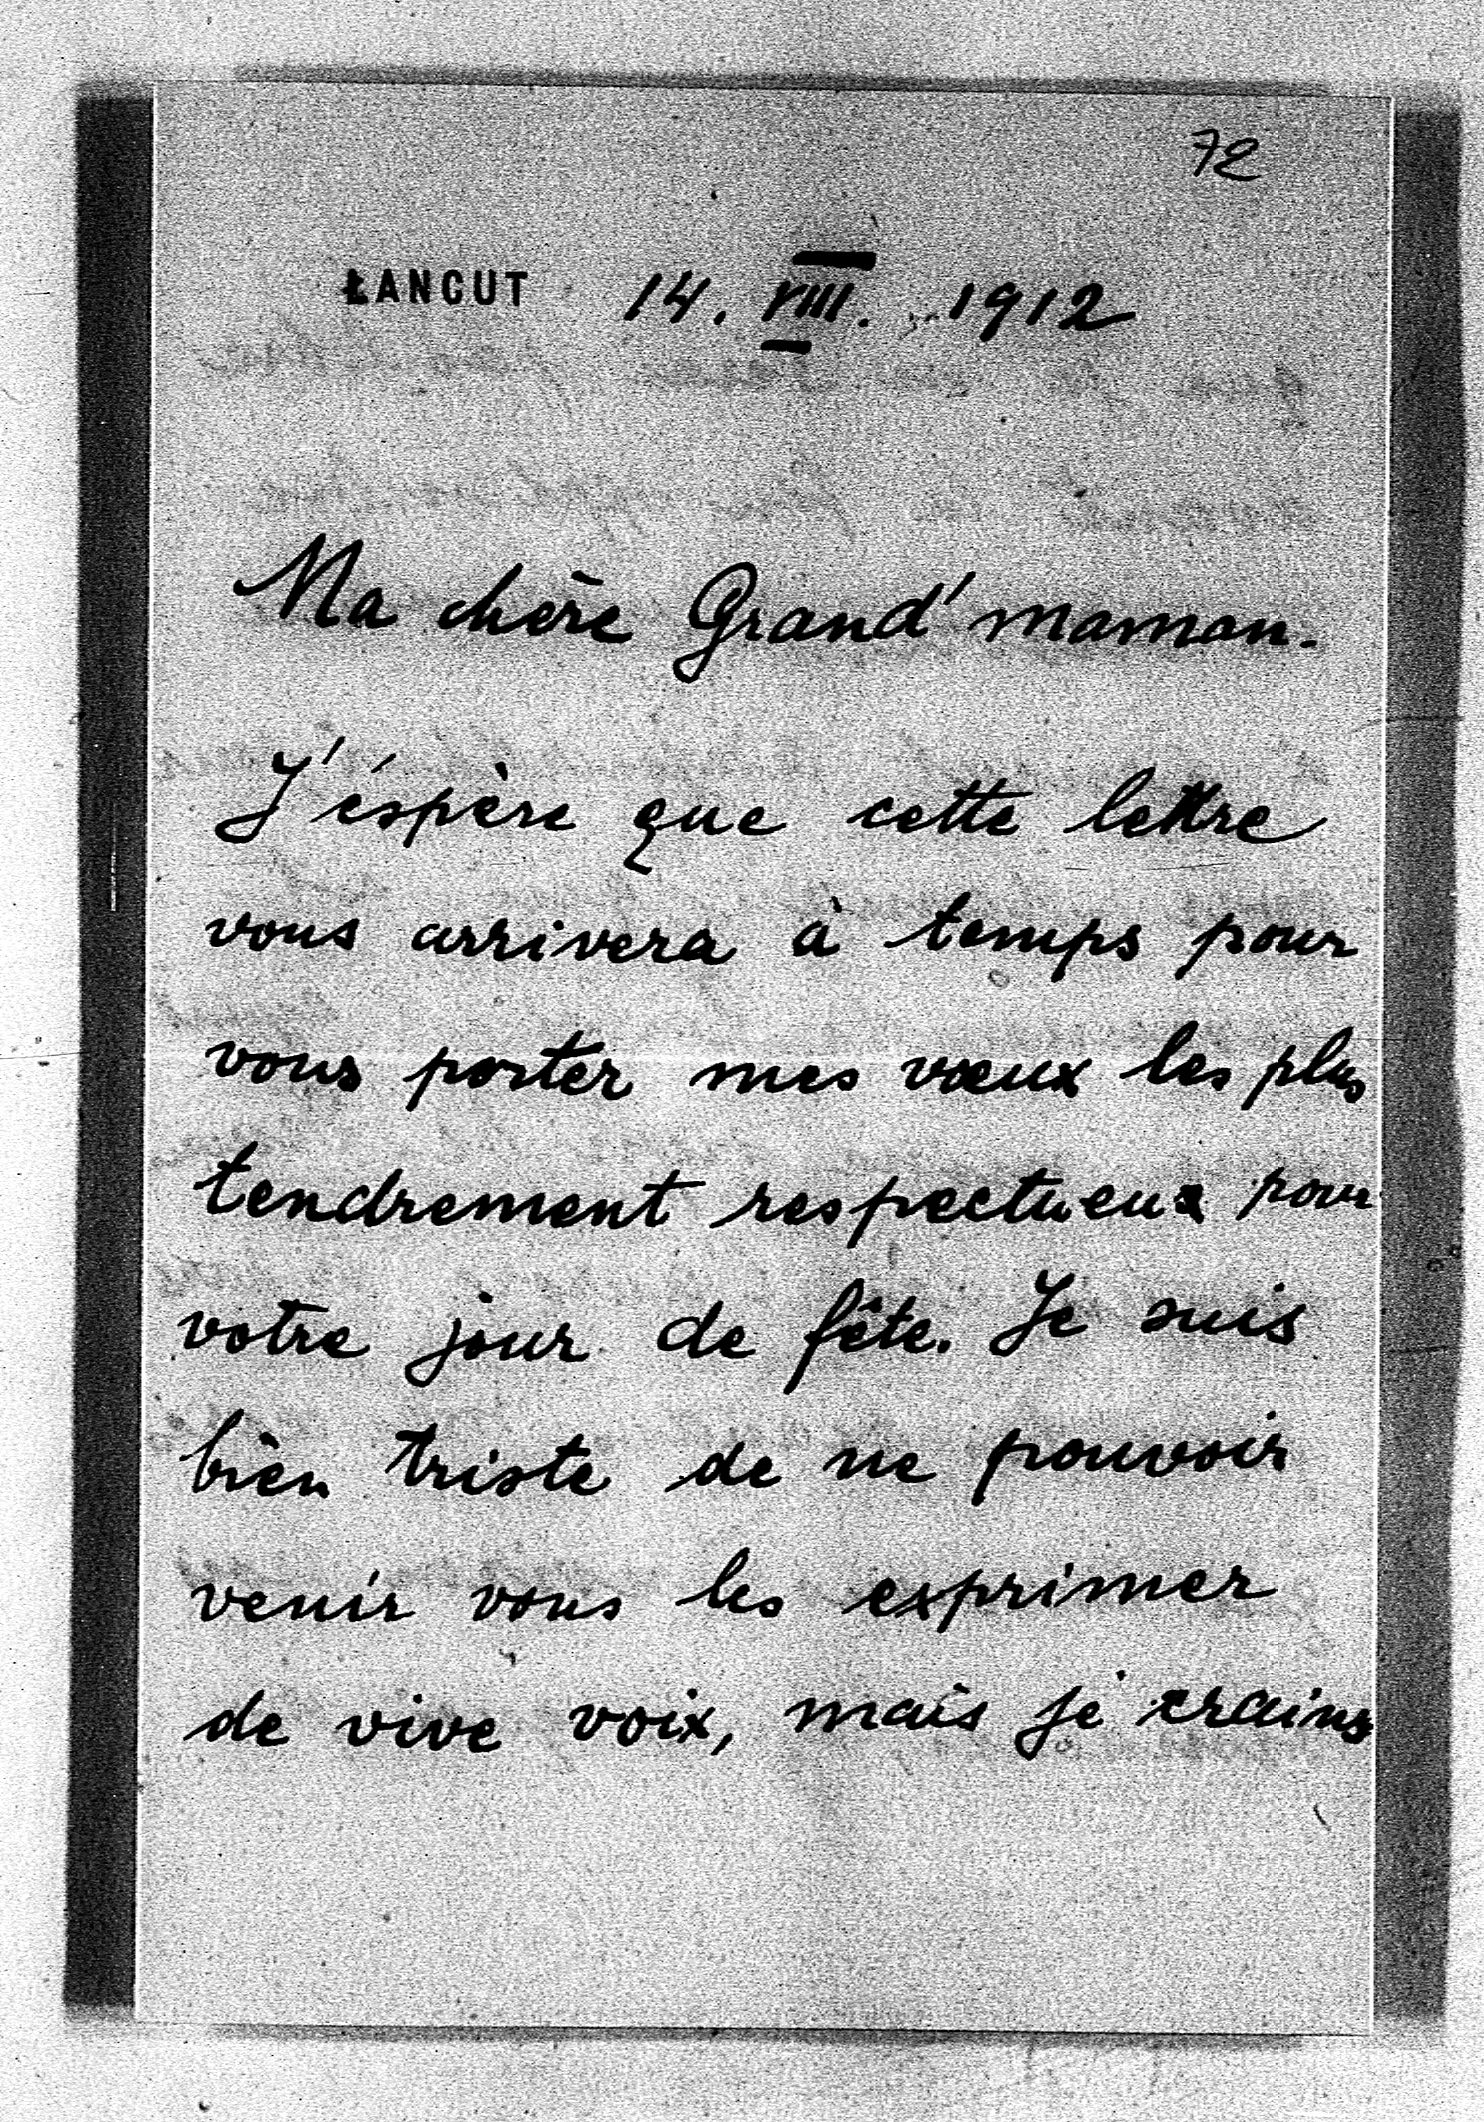 72
ŁANCUT 14. VIII. 1912
Ma chère Grand'maman.
J'éspère que cette lettre
vous arrivera à temps pour
vous porter mes vœux les plus
tendrement respectueux pour
votre jour de fête. Je suis
bien triste de ne pouvoir
venir vous les exprimer
de vive voix, mais je crains